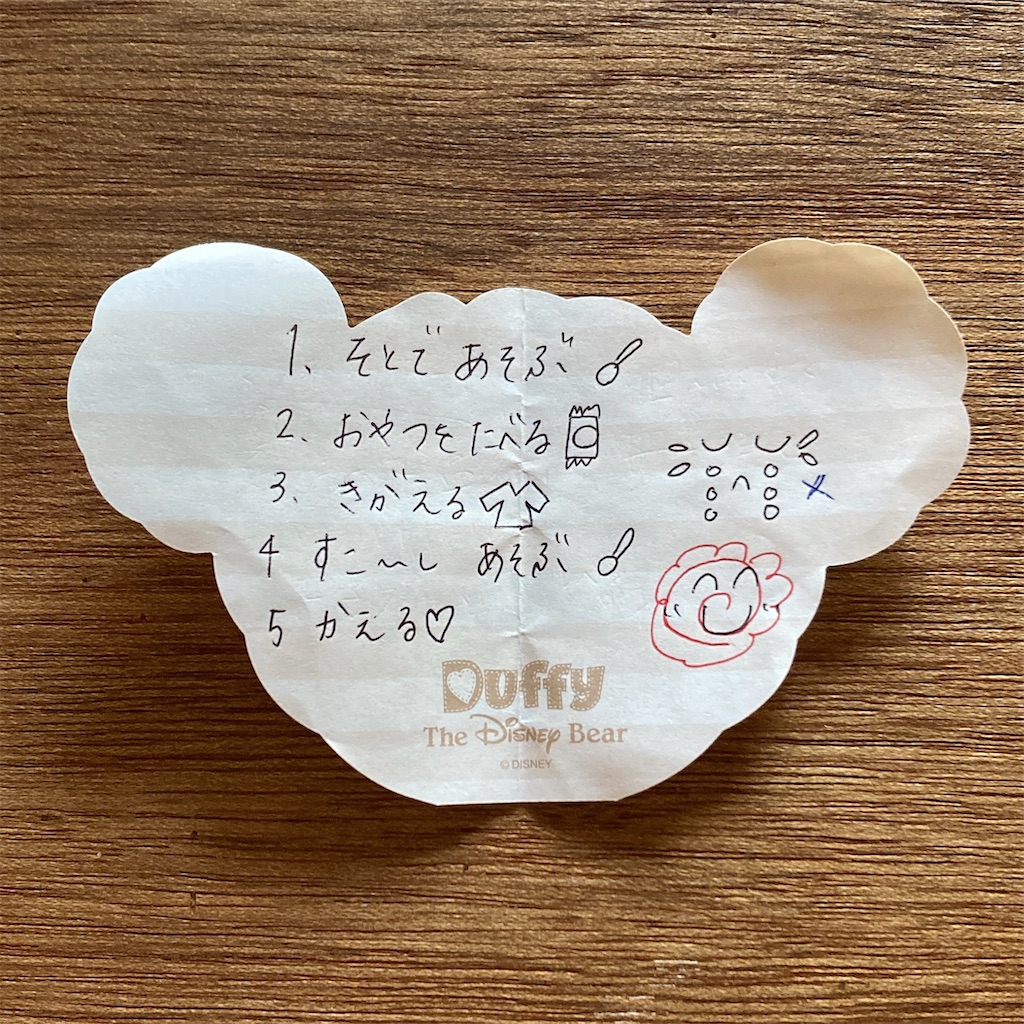 1. そとで あそぶ
2. おやつを たべる
3. きがえる
4 すこ〜し あそぶ
5 かえる♡
Duffy
The Disney Bear
© DISNEY